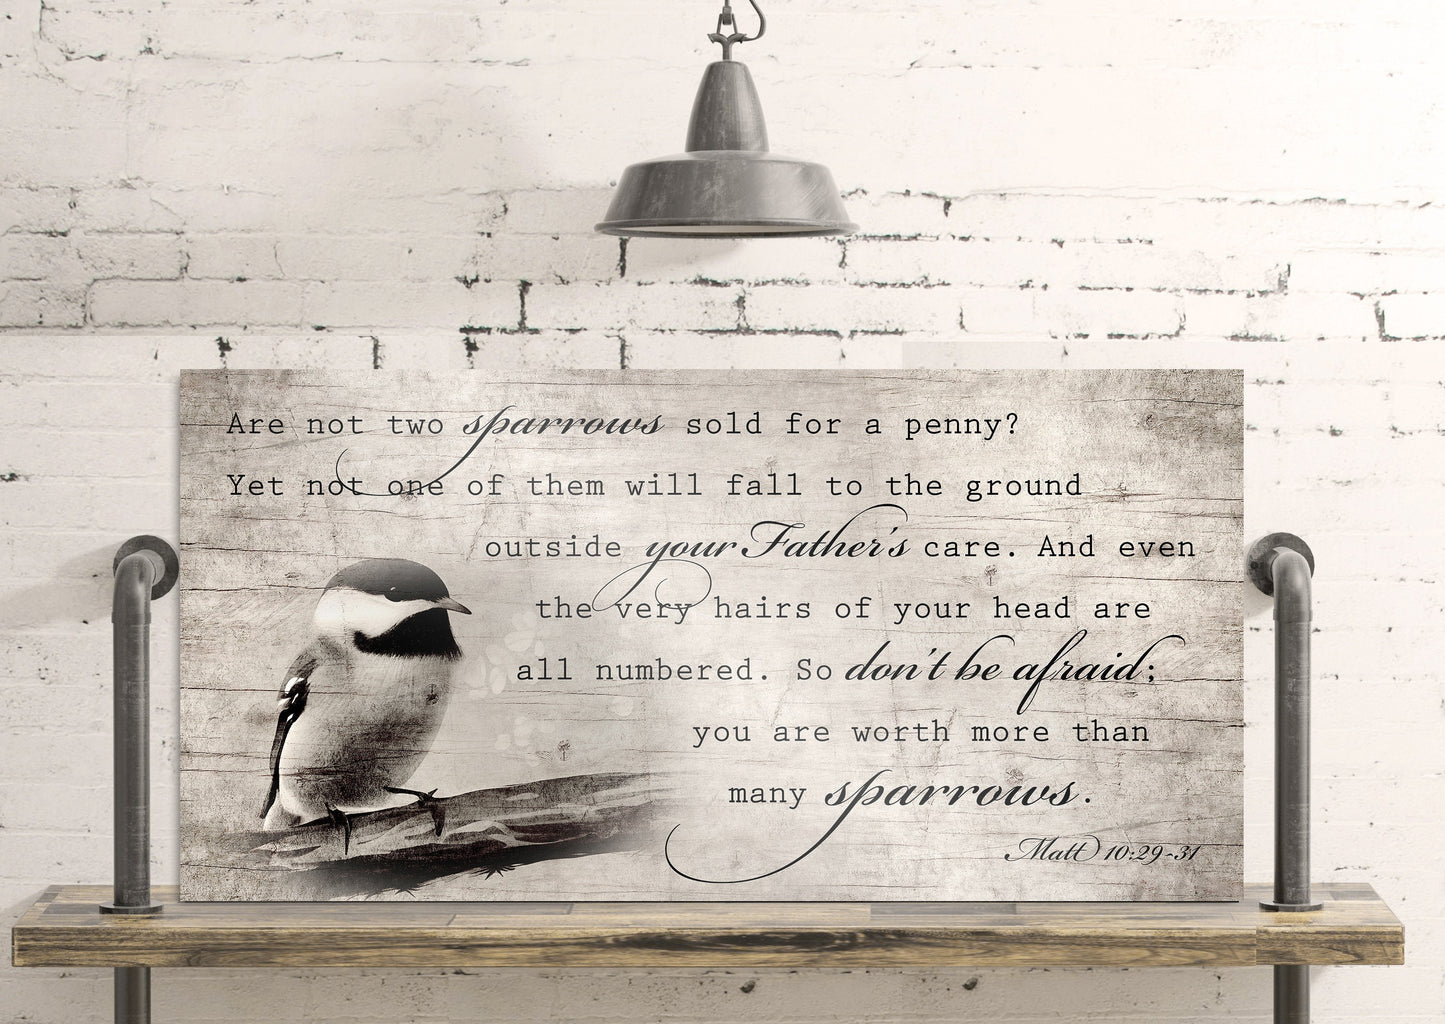 Are not two sparrows sold for a penny?
Yet not one of them will fall to the ground
outside your Father's care. And even
the very hairs of your head are
all numbered. So don't be afraid;
you are worth more than
many sparrows.
Matt 10:29-31